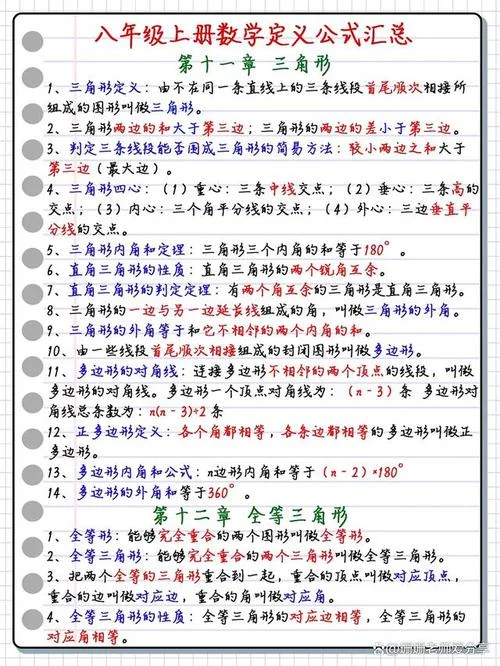 八年级上册数学定义公式汇总
第十一章 三角形
1、三角形定义：由不在同一条直线上的三条线段首尾顺次相接所
组成的图形叫做三角形。
2、三角形两边的和大于第三边；三角形的两边的差小于第三边。
3、判定三条线段能否围成三角形的简易方法：较小两边之和大于
第三边（最大边）。
4、三角形四心：（1）重心：三条中线交点；（2）垂心：三条高的
交点；（3）内心：三个角平分线的交点；（4）外心：三边垂直平
分线的交点。
5、三角形内角和定理：三角形三个内角的和等于180°。
6、直角三角形的性质：直角三角形的两个锐角互余。
7、直角三角形的判定定理：有两个角互余的三角形是直角三角形。
8、三角形的一边与另一边延长线组成的角，叫做三角形的外角。
9、三角形的外角等于和它不相邻的两个内角的和。
10、由一些线段首尾顺次相接组成的封闭图形叫做多边形。
11、多边形的对角线：连接多边形不相邻的两个顶点的线段，叫做
多边形的对角线。多边形一个顶点对角线为：（n-3）条 多边形对
角线总条数为：n(n-3)÷2 条
12、正多边形定义：各个角都相等，各条边都相等的多边形叫做正
多边形。
13、多边形内角和公式：n边形内角和等于（n-2）×180°
14、多边形的外角和等于360°。
第十二章 全等三角形
1、全等形：能够完全重合的两个图形叫做全等形。
2、全等三角形：能够完全重合的两个三角形叫做全等三角形。
3、把两个全等的三角形重合到一起，重合的顶点叫做对应顶点，
重合的边叫做对应边，重合的角叫做对应角。
4、全等三角形的性质：全等三角形的对应边相等，全等三角形的
对应角相等。